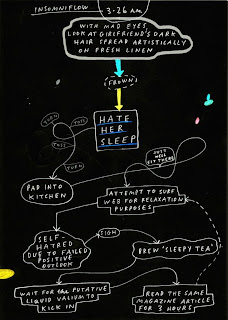 INSOMNIFLOW
3.26 am
WITH MAD EYES,
LOOK AT GIRLFRIEND'S DARK
HAIR SPREAD ARTISTICALLY
ON FRESH LINEN
FROWN
HATE
HER
SLEEP
TURN
TOSS
TOSS
TURN
JUST
WELL
SIT THERE
PAD INTO
KITCHEN
ATTEMPT TO SURF
WEB FOR RELAXATION
PURPOSES
SELF-
HATRED
DUE TO FAILED
POSITIVE
OUTLOOK
SIGH
BREW 'SLEEPY TEA'
WAIT FOR the PUTATIVE
LIQUID VALIUM TO
KICK IN
READ THE SAME
MAGAZINE ARTICLE
FOR 3 HOURS